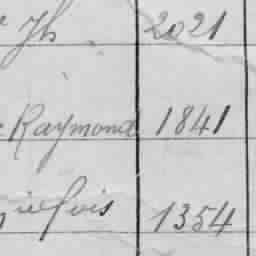 Jh 2021
Raymond 1841
1354